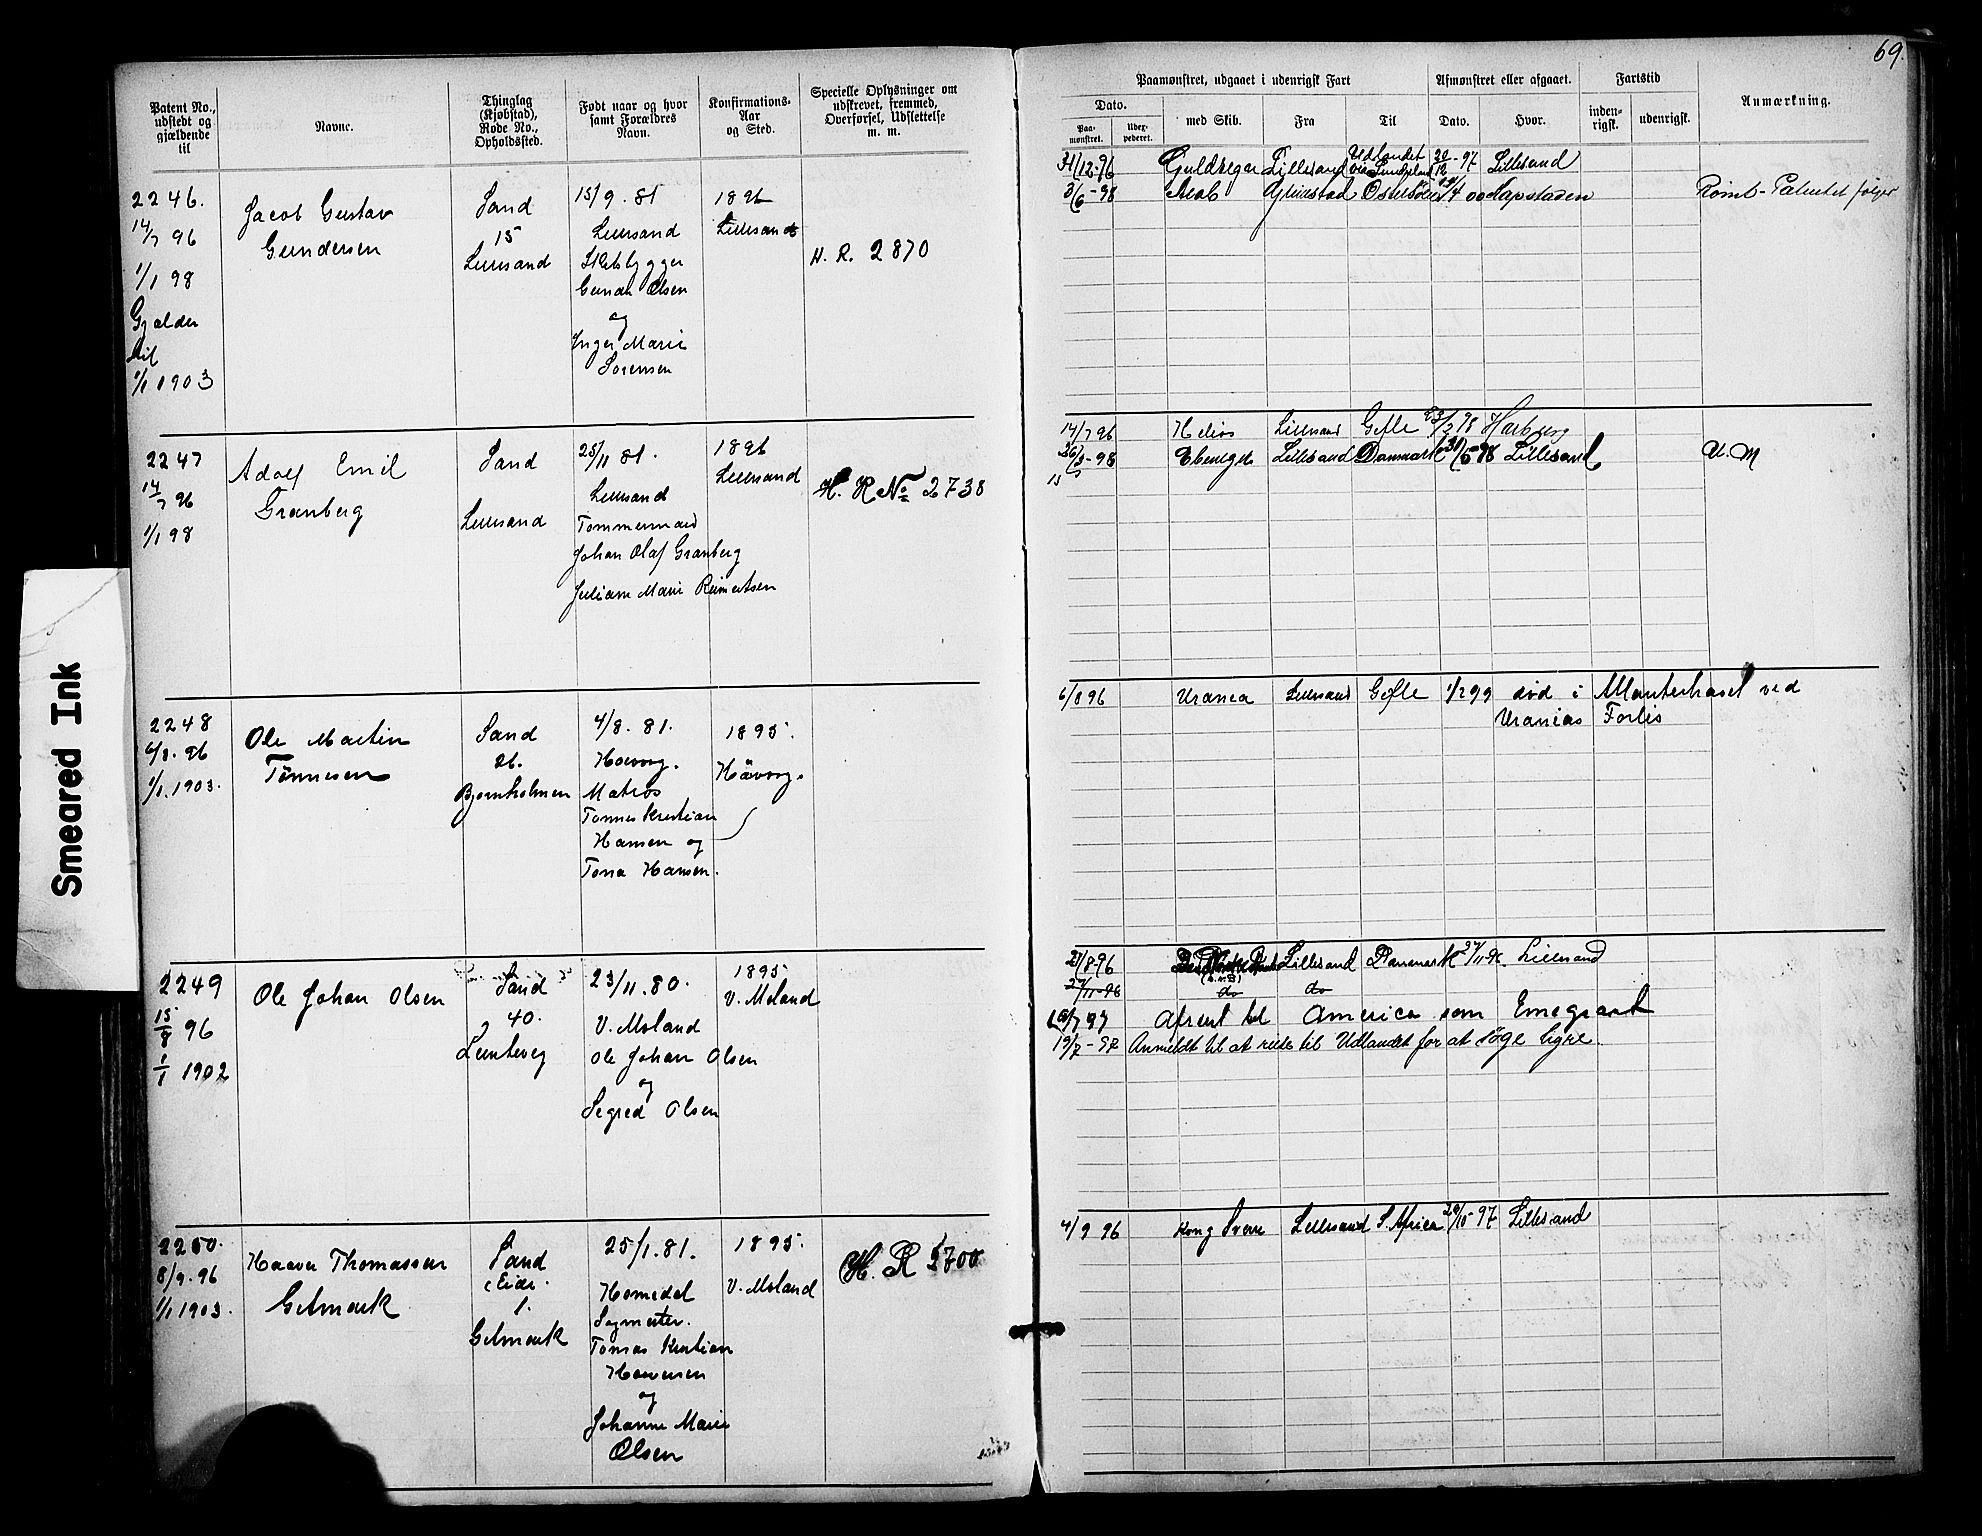 69.
Patent No., udstedt og gjældende til
Navne.
Thinglag (Kjøbstad), Rode No., Opholdssted.
Født naar og hvor samt Forældres Navn.
Konfirmations-Aar og Sted.
Specielle Oplysninger om udskrevet, fremmed, Overførsel, Udslettelse m. m.
Paamønstret, udgaaet i udenrigsk Fart
Afmønstret eller afgaaet.
Fartstid
Anmærkning.
Dato.
Paa-mønstret.
Uder-pederet.
med Skib.
Fra
Til
Dato.
Hvor.
inden-rigsk.
udenrigsk.
2246.
14/7 96
1/1 98
Gjælder
til
1/1 1903
Jacob Gustav
Gundersen
Sand
15
Lillesand
15/9. 81
Lillesand
Skibbygger
Gunder Olsen
og
Inger Marie
Sorensen
1896
Lillesand
H. R. 2870
31/12-96 Guldregn Lillesand Udlandet 30/12-97 Lillesand
3/6-98 Grimstad Østersøen 00 Kapstaden
Patentet følger
2247
14/7 96
1/1 98
Adolf Emil
Granberg
Sand
Lillesand
25/11 81.
Lillesand
Tømmermand
Johan Olaf Granberg
Juliane Marie Reimertsen
1896
Lillesand
H. R No 2738
14/7 96 Helios Lillesand Gefle 98 Harburg
26/3-98 Ebeneser Lillesand Danmark 98 Lillesand
U. M
2248
6/8. 96
1/1. 1903.
Ole Martin
Tønnesen
Sand
26.
Bjørnholmen
4/8. 81.
Høivaag.
Matros
Tønnes Kristian
Hansen og
Tona Hansen.
1895.
Høvaag.
6/8 96 Urania Lillesand Gefle 1/2 99 død i Manterhavet ved
Uranias Forlis
2249
15/8 96
1/1 1902
Ole Johan Olsen
Sand
40.
Luntevig
23/11. 80.
V. Moland
Ole Johan Olsen
og
Segred Olsen
1895
V. Moland
21/8-96 Lillesand Danmark 27/11-96. Lillesand
27/11-96 do do
97 Afreist til America som Emegrant
19/7-97 Anmeldt til at reise til Udlandet for at søge hyre.
2250.
8/9. 96
1/1 1903.
Haaver Thomassen
Getmark
Sand
(Eide)
1.
Getmark
25/1. 81.
Homedal
Sagmester.
Tomas Kristian
Haaversen
og
Johanne Marie
Olsen
1895.
V. Moland
H. R 2700
4/9 96 Kong Sverre Lillesand S. Africa 97 Lillesand
Smeared Ink